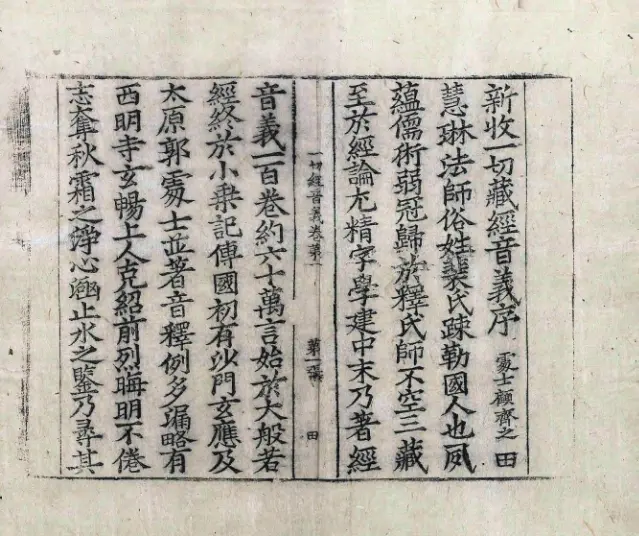 新收一切藏經音義序 處士顧齊之 田
慧琳法師俗姓裴氏疎勒國人也夙
蘊儒術弱冠歸於釋氏師不空三藏
至於經論尤精字學建中末乃著經
一切經音義卷第一 第一張 田
音義一百卷約六十萬言始於大般若
經終於小乗記傳國初有沙門玄應及
太原郭處士並著音釋例多漏略有
西明寺玄暢上人克紹前烈晦明不倦
志奪秋霜之淨心凾止水之鑒乃尋其